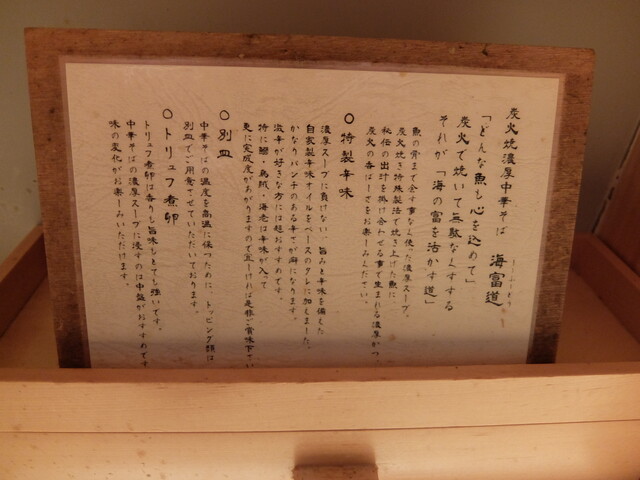 炭火焼濃厚中華そば 海富道
「どんな魚も心を込めて」
炭火で焼いて無駄なくすする
それが「海の富を活かす道」
魚の骨まで余す事なく使った濃厚スープ。
炭火焼き特殊製法で炊き上げた魚に、
秘伝の出汁を掛け合わせる事で生まれる濃厚かつ、
炭火の香ばしさをお楽しみください。
○特製辛味
濃厚スープに負けない、旨みと辛味を備えた
自家製辛味オイルをベースのタレに加えました。
かなりパンチのある辛さが癖になります。
激辛が好きな方には超おすすめです。
特に鯛・烏賊・海老は辛味が入って
更に完成度があがりますので宜しければ是非ご賞味下さい
○別皿
中華そばの温度を高温に保つために、トッピング類は
別皿でご用意させていただいております。
○トリュフ煮卵
トリュフ煮卵は香りも旨味もとても強いです。
中華そばの濃厚スープに浸すのは中盛がおすすめです
味の変化がお楽しみいただけます。